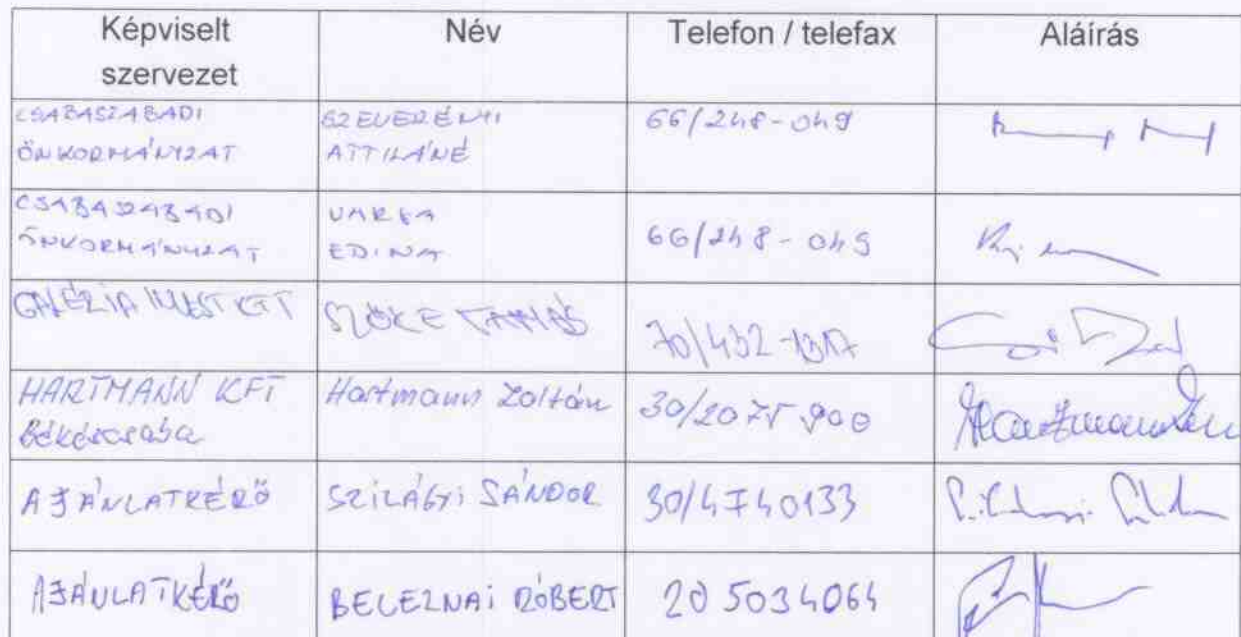 Képviselt
szervezet
Név
Telefon / telefax
Aláírás
CSABASZABADI
ÖNKORMÁNYZAT
SZELEZSÉNYI
ATTILÁNÉ
66/248-049
CSABASZABADI
ÖNKORMÁNYZAT
VARGA
EDINA
66/248-049
GALÉRIA INVEST KFT
SZŐKE TAMÁS
70/432-1317
HARTMANN KFT
Békéscsaba
Hartmann Zoltán
30/2075 900
AJÁNLATKÉRŐ
SZILÁGYI SÁNDOR
30/4740133
AJÁNLATKÉRŐ
BELEZNAI RÓBERT
20 5034064